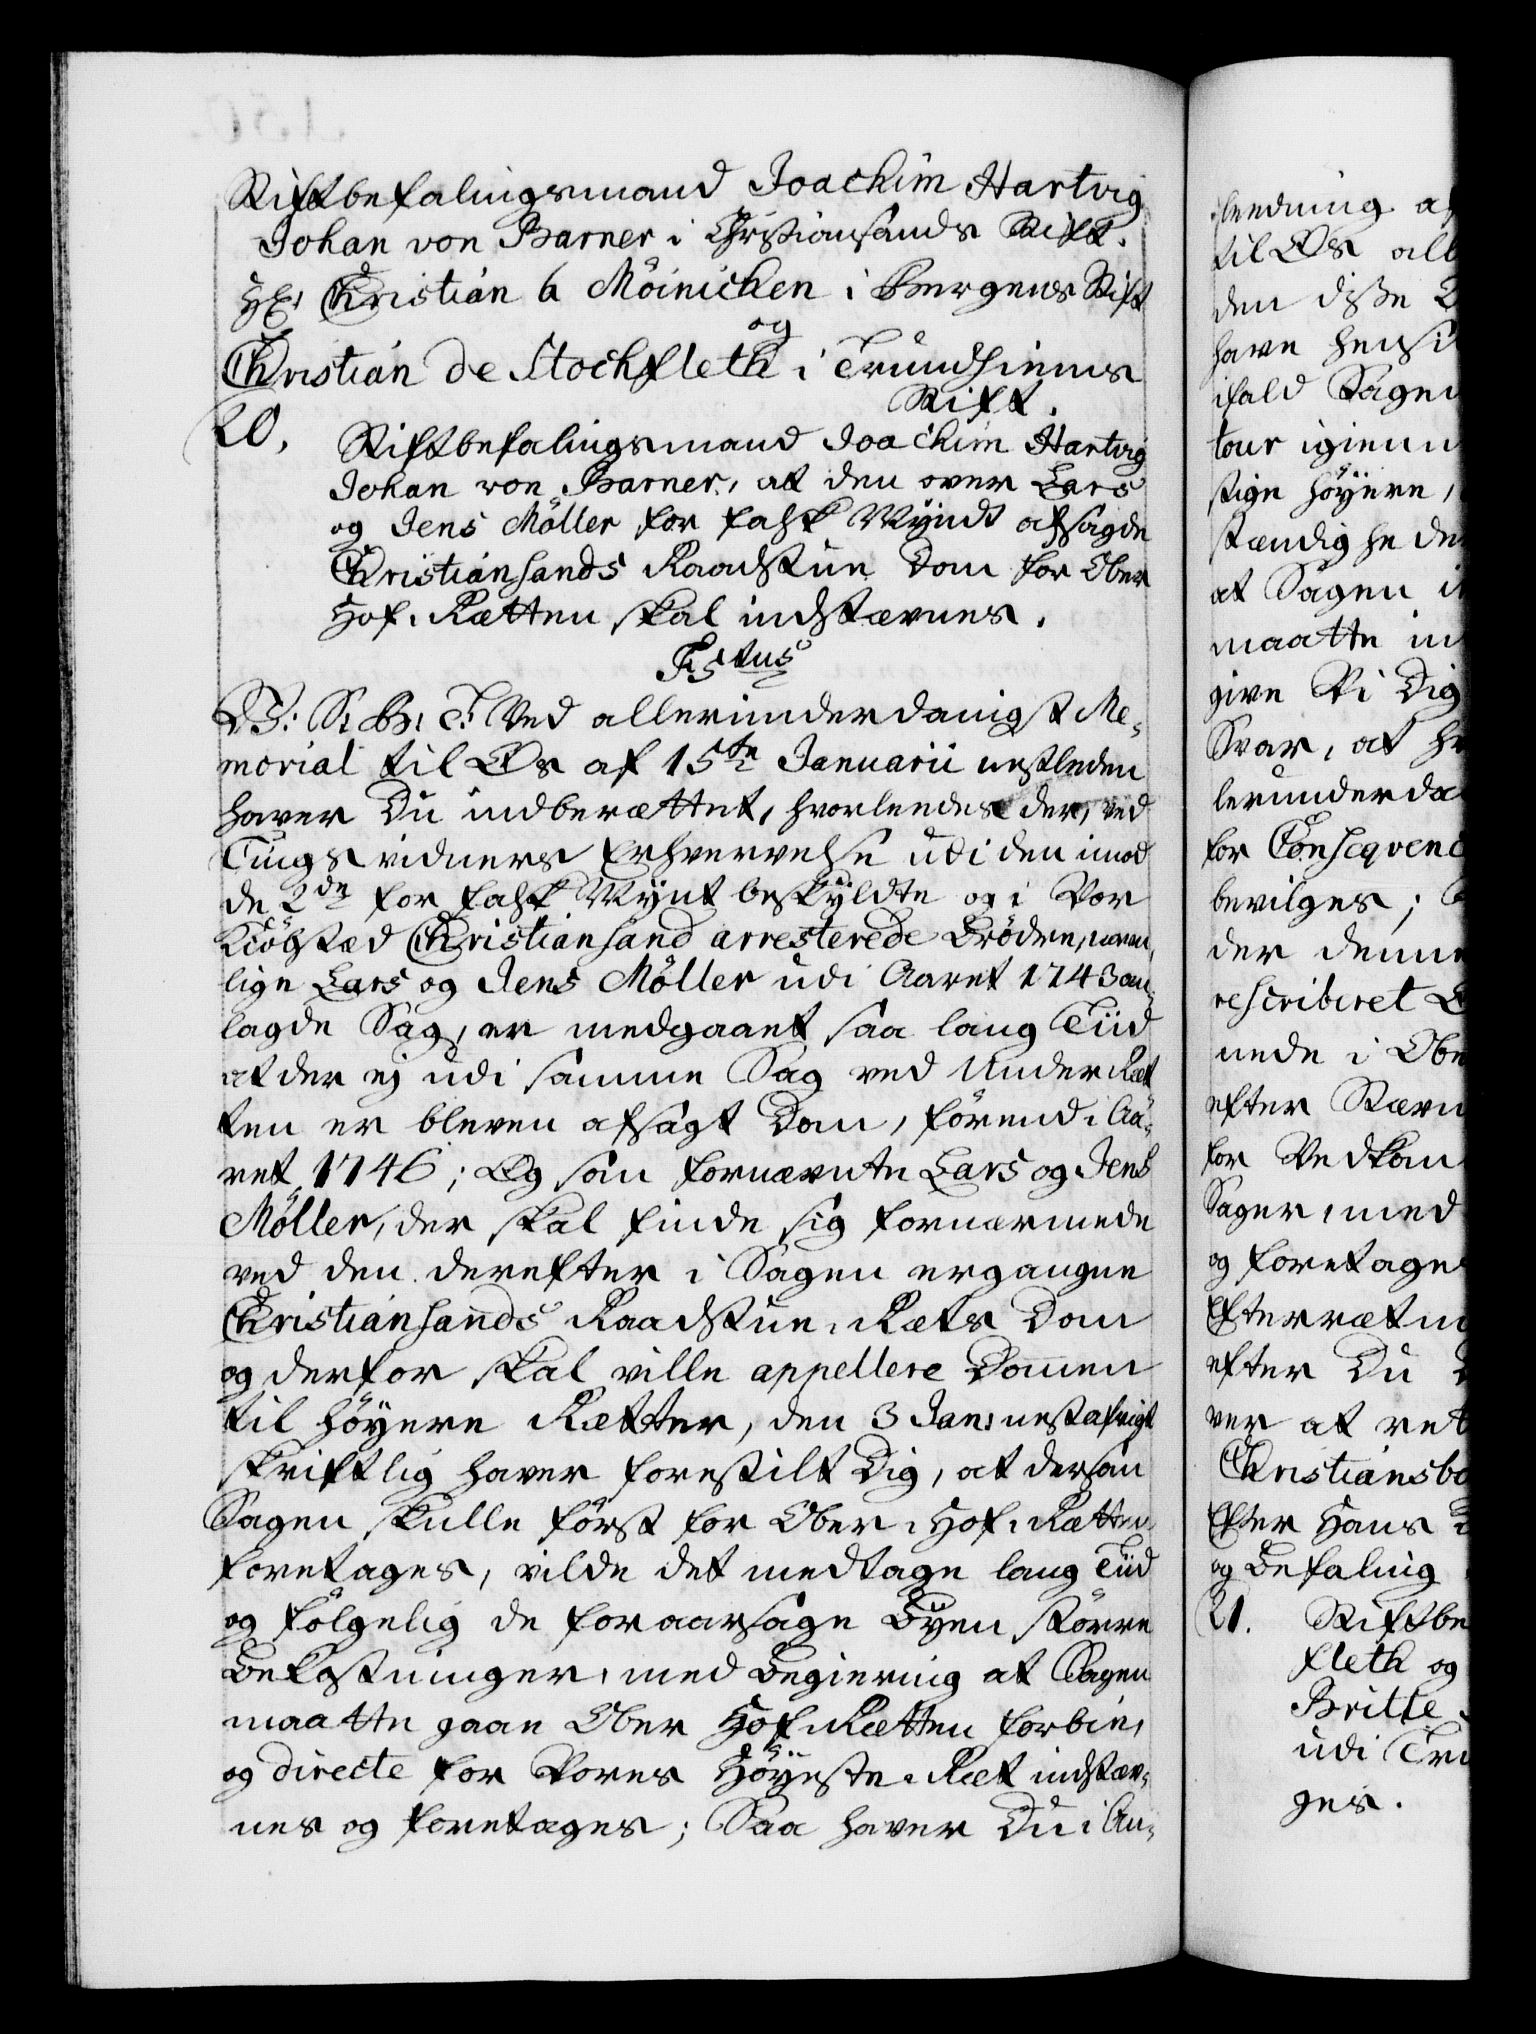 Stiftbefalingsmand Joachim Hartvig
Johan von Barner i Christiansands Stift.
Hr: Christian a Möinichen i Bergens Stift
og
Christian de Stochfleth i Trundhiems
Stift.
20. Stiftbefalingsmand Joachim Hartvig
Johan von Barner, at den over Lars
og Jens Möller for falsk Myndt afsagde
Christiansands Raadstue Dom for Ober
Hof-Retten skal indstævnes.
F5tus
V: G: Ved allerunderdanigst Me-
morial til Os af 15de Januarii nestleden
haver Du indberættet, hvorlendes der, ved
Tings vidners Erhvervelse udi den imod
de 2de for falsk Mynt beskyldte og i Vor
Kiöbstæd Christiansand arresterede Brödre, nem-
lige Lars og Jens Möller udi Aaret 1743 an-
lagde Sag, er medgaaet saa lang Tiid
at der ej udi samme Sag ved Under Ret
ten er bleven afsagt Dom, förend i Aa-
ret 1746; Og som fornævnte Lars og Jens
Möller, der skal finde sig fornærmede
ved den derefter i Sagen ergangne
Christiansands Raadstue-Rets Dom
og derfor skal ville appellere Dommen
til höyere Retter, den 3 Jan: nestafvigt
skriftlig haver forestilt Dig, at dersom
Sagen skulle först for Ober-Hof-Retten
foretages, vilde det medtage lang Tiid
og fölgelig de foraarsage Byen större
Bekostninger, med Begiering at Sagen
maatte gaae Ober Hof-Retten forbie,
og directe for Vores Höyeste-Ret indstæv-
nes og foretages; Saa haver Du i An-
ledning af
til Os all
den disse
have hensi
ifald Sagen
tour igienn
stige höyere,
stændighe de
at Sagen i
maatte in
give Vi Dig
Svar, at
lerunderda
for Conseqvenc
bevilges;
der denne
rescriberet
nede i Obe
efter Stævn
for Vedkom
Sager, med
og foretage
Efterretn
efter Du
ver at ret
Christiansbo
Efter Hans
og Befaling
21. Stiftbe
fleth og
Britte
udi Tru
ges.